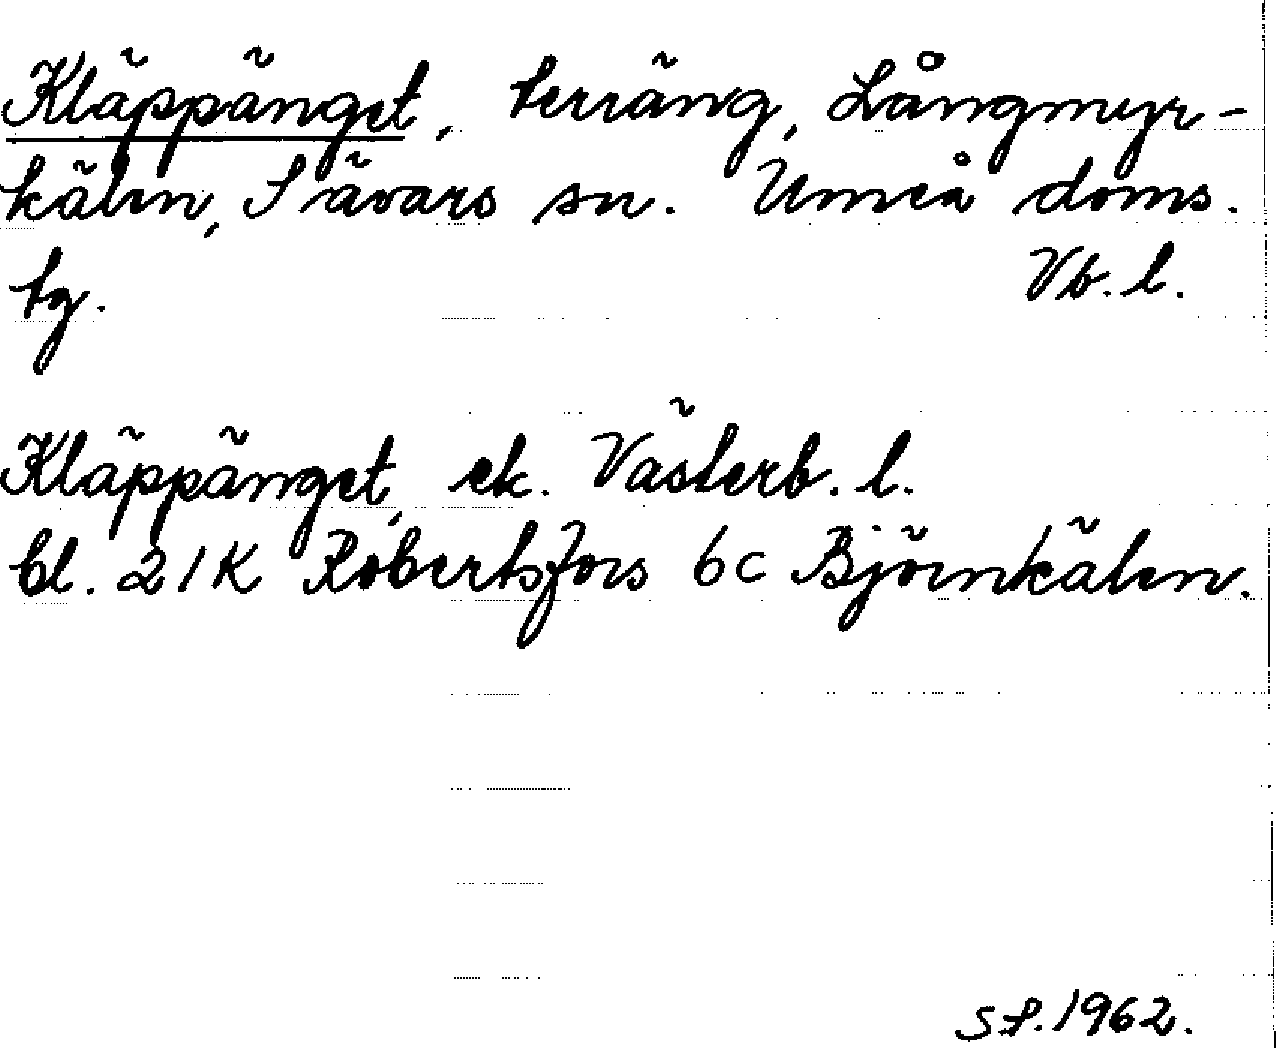 Kläppänget, terräng, Långmyr-
kälen, Sävars sn. Umeå doms.
tg. Vb. l.
Kläppänget, ek. Västerb. l.
bl. 21K Robertsfors 6c Björnkälen.
1962.